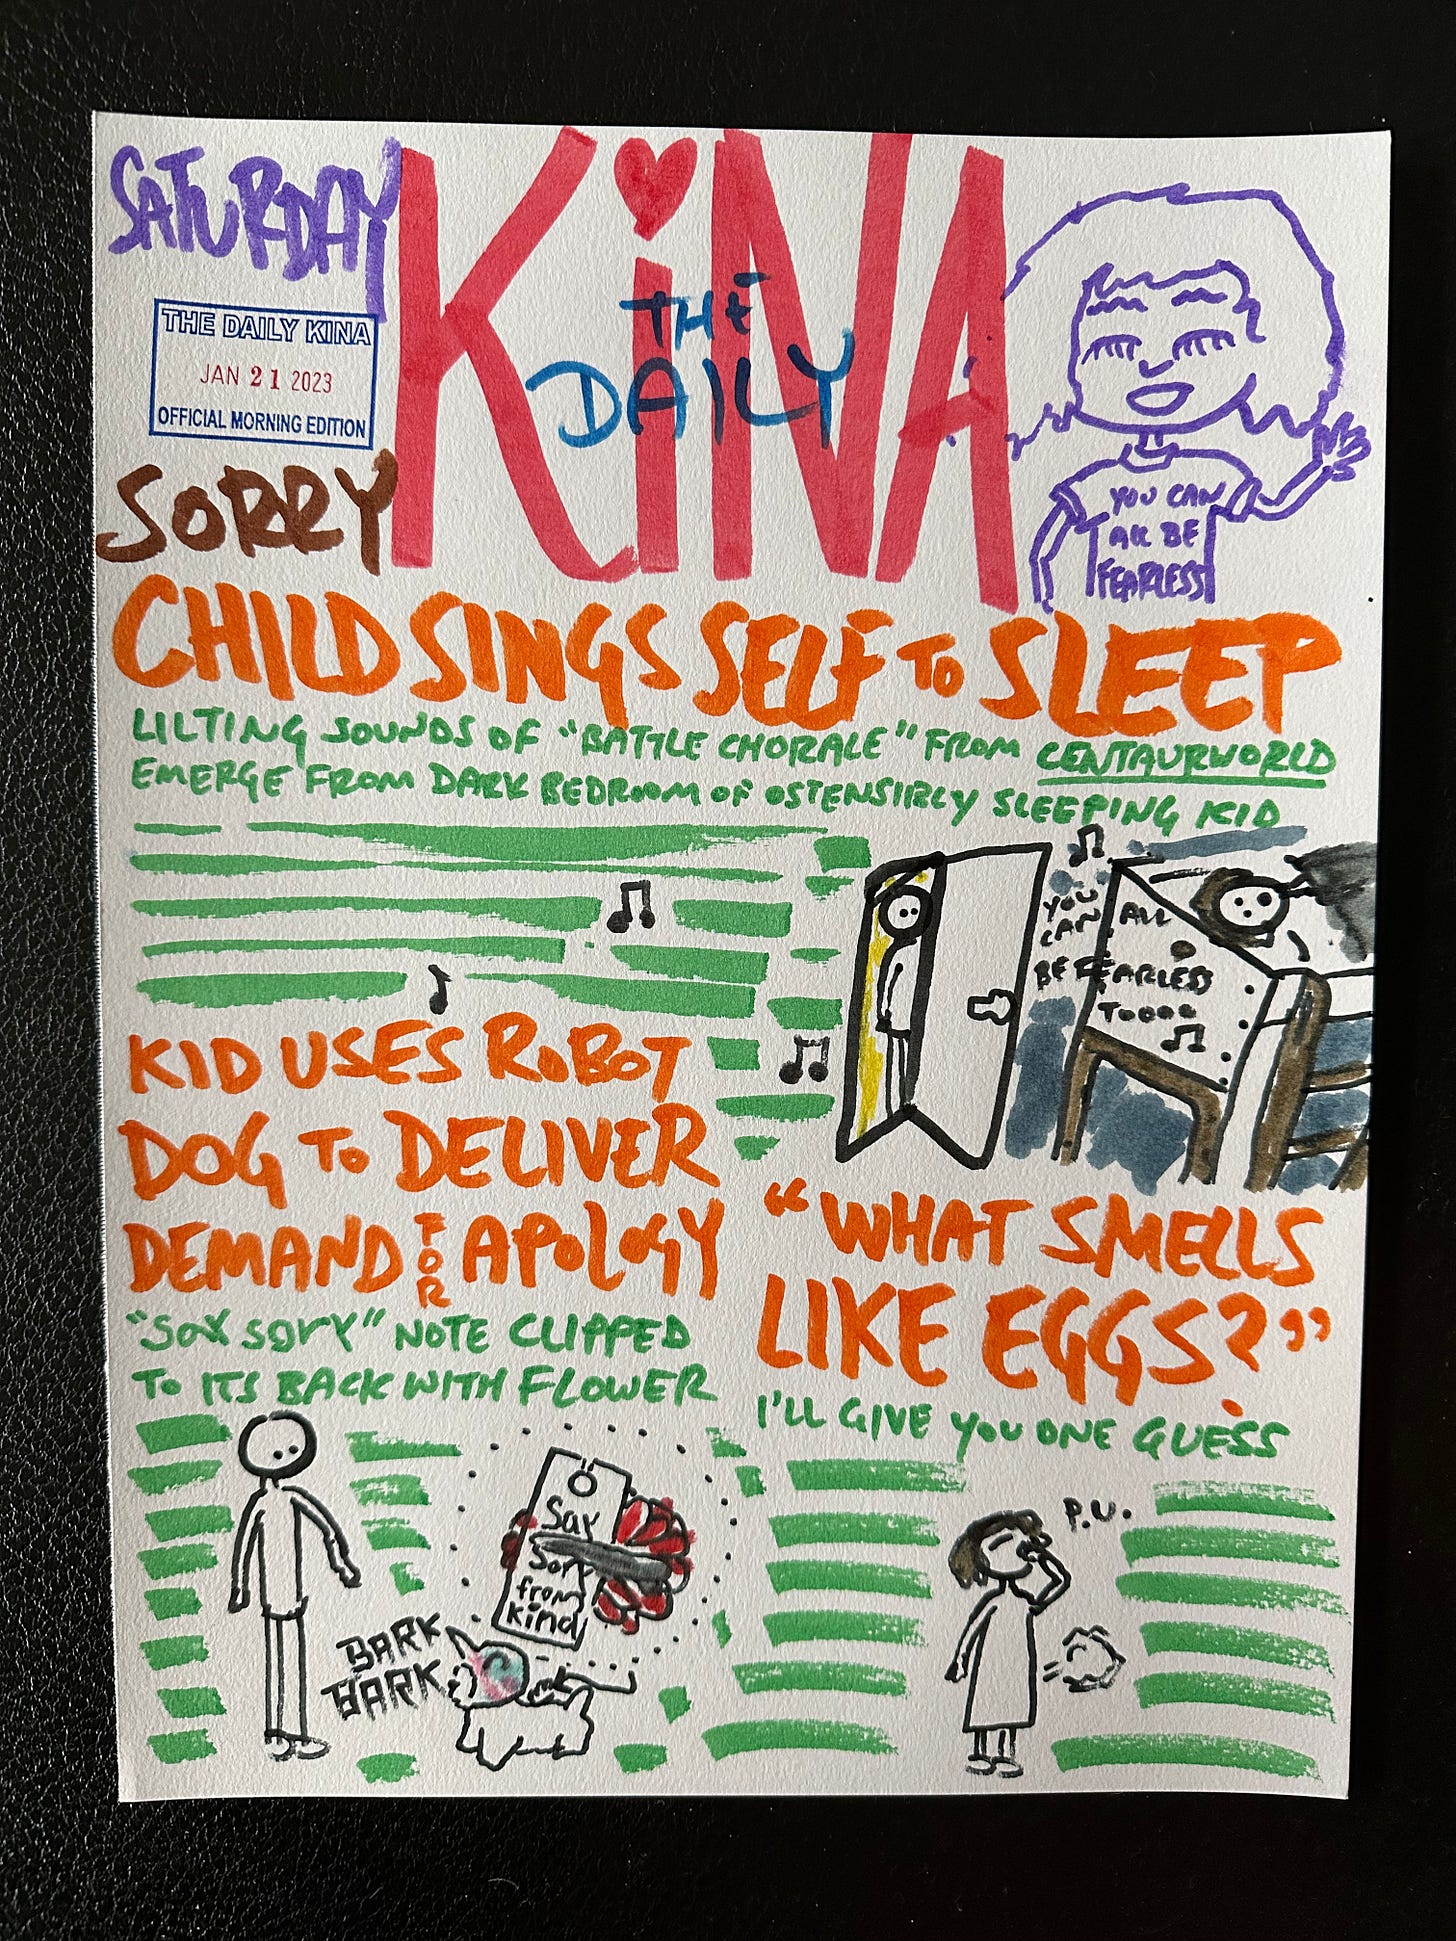 SATURDAY
KiNA
THE
DAILY
THE DAILY KINA
JAN 21 2023
OFFICIAL MORNING EDITION
SORRY
YOU CAN
ALL BE
FEARLESS
CHILD SINGS SELF TO SLEEP
LILTING SOUNDS OF "BATTLE CHORALE" FROM CENTAURWORLD
EMERGE FROM DARK BEDROOM OF OSTENSIBLY SLEEPING KID
YOU
CAN ALL
BE FEARLESS
TOOOO
KID USES ROBOT
DOG TO DELIVER
DEMAND FOR APOLOGY
"Say sory" NOTE CLIPPED
TO ITS BACK WITH FLOWER
Say
Sory
from
kind
BARK
BARK
"WHAT SMELLS
LIKE EGGS?"
I'LL GIVE YOU ONE GUESS
P.U.